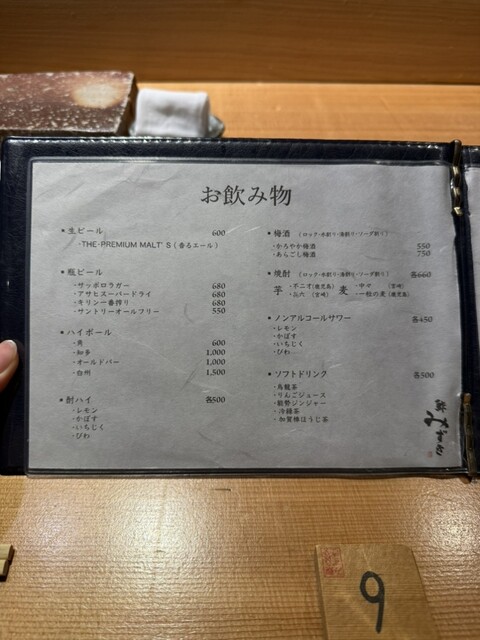 お飲み物
・生ビール 600
・THE・PREMIUM MALT'S（香るエール）
・瓶ビール
・サッポロラガー 680
・アサヒスーパードライ 680
・キリン一番搾り 680
・サントリーオールフリー 550
・ハイボール
・角 600
・知多 1,000
・オールドパー 1,000
・白州 1,500
・酎ハイ 各500
・レモン
・かぼす
・いちじく
・びわ
・梅酒 （ロック・水割り・湯割り・ソーダ割り）
・かろやか梅酒 550
・あらごし梅酒 750
・焼酎 （ロック・水割り・湯割り・ソーダ割り） 各660
芋 ・不二才（鹿児島） 麦 ・中々 （宮崎）
・㐂六 （宮崎） ・一粒の麦（鹿児島）
・ノンアルコールサワー 各450
・レモン
・かぼす
・いちじく
・びわ
・ソフトドリンク 各500
・烏龍茶
・りんごジュース
・能勢ジンジャー
・冷緑茶
・加賀棒ほうじ茶
9